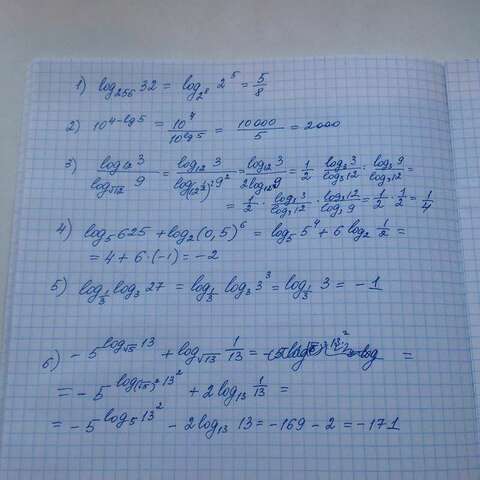 1) log₂₅₆ 32 = log_{2⁸} 2⁵ = 5/8
2) 10^{4-lg5} = 10⁴/10^{lg5} = 10000/5 = 2000
3) log₁₂ 3/log_{√12} 9 = log₁₂ 3/log_{(12^{1/2})²} 9² = log₁₂ 3/2log₁₂ 9 = 1/2 · log₃ 3/log₃ 12 : log₃ 9/log₃ 12 =
= 1/2 · log₃ 3/log₃ 12 · log₃ 12/log₃ 9 = 1/2 · 1/2 = 1/4
4) log₅ 625 + log₂ (0,5)⁶ = log₅ 5⁴ + 6 log₂ 1/2 =
= 4 + 6·(-1) = -2
5) log_{1/3} log₃ 27 = log_{1/3} log₃ 3³ = log_{1/3} 3 = -1
6) -5^{log_{√5} 13} + log_{√13} 1/13 = =
= -5^{log_{(√5)²} 13²} + 2 log₁₃ 1/13 =
= -5^{log₅ 13²} - 2 log₁₃ 13 = -169 - 2 = -171